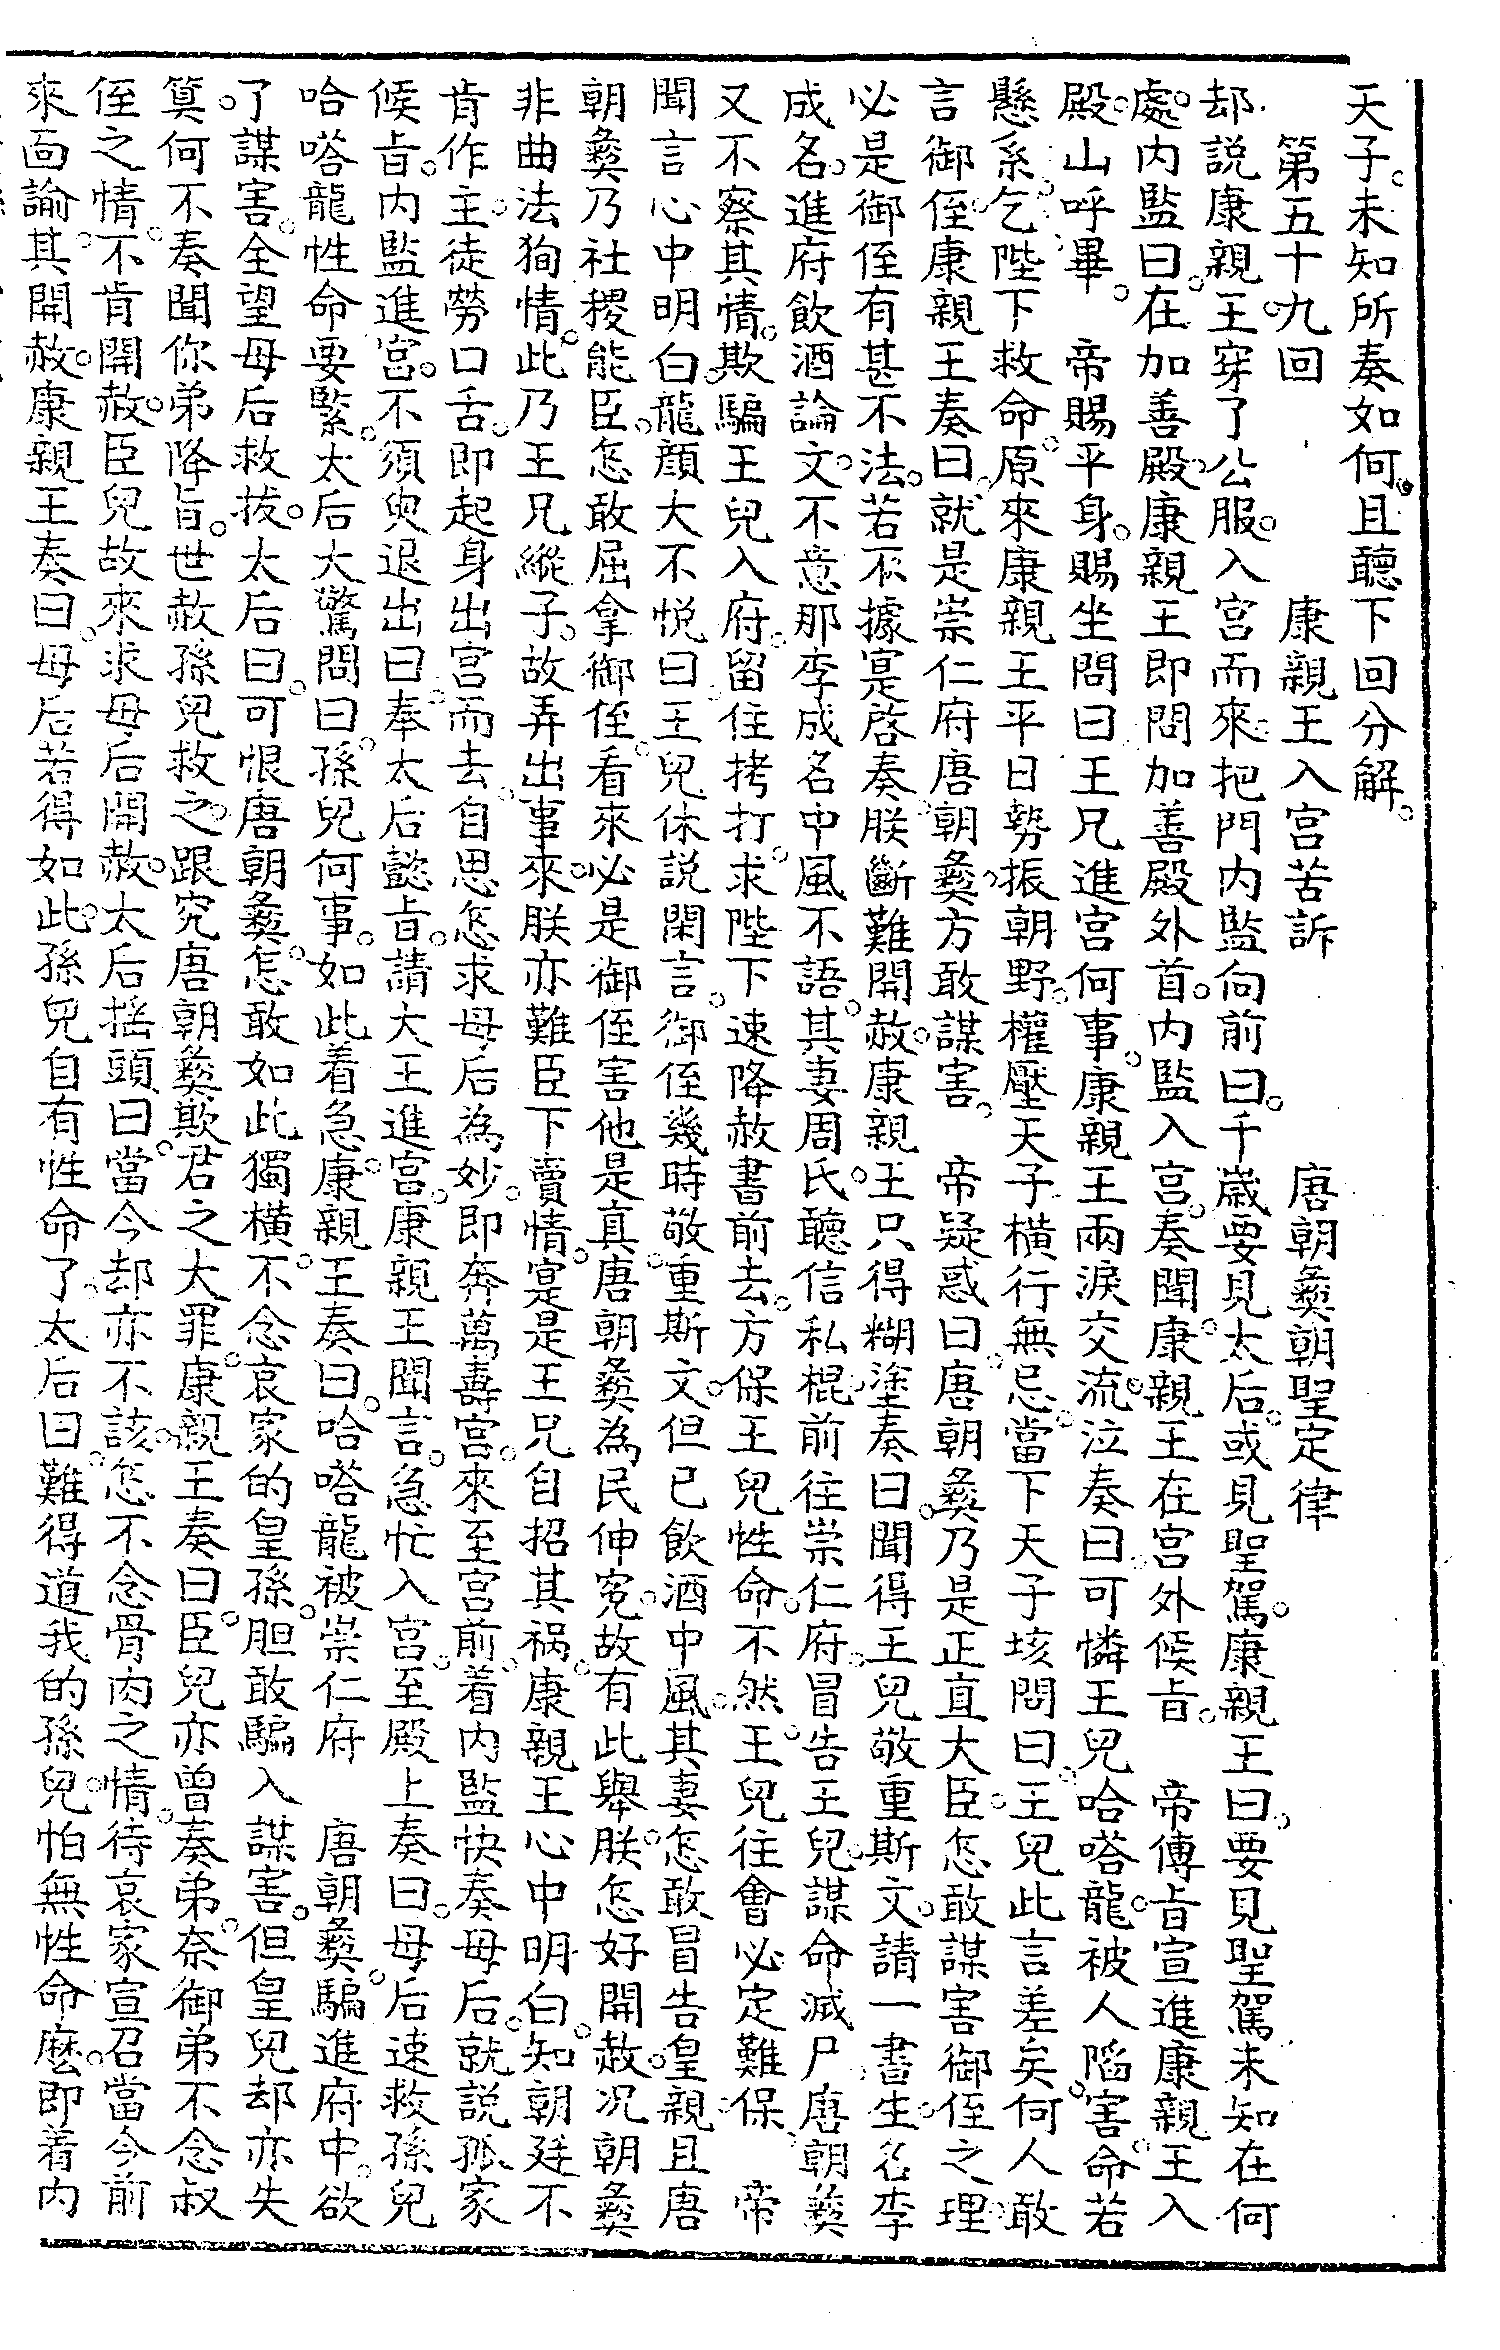 天子。未知所奏如何。且聽下回分解。
第五十九回　康親王入宮苦訴　唐朝彝朝聖定律
却説康親王。穿了公服。入宮而來。把門內監向前曰。千歲要見太后。或見聖駕。康親王曰。要見聖駕未知在何
處。內監曰。在加善殿。康親王即問加善殿外首。內監入宮。奏聞康親王在宮外候旨。　帝傳旨宣進康親王入
殿。山呼畢。　帝賜平身。賜坐問曰王兄進宮何事。康親王兩淚交流。泣奏曰。可憐王兒哈嗒龍。被人陷害。命若
懸系。乞陛下救命。原來康親王平日勢振朝野。權壓天子橫行無忌。當下天子垓問曰。王兒此言差矣何人敢
言御侄。康親王奏曰。就是崇仁府唐朝彝。方敢謀害。　帝疑惑曰。唐朝彝乃是正直大臣。怎敢謀害御侄之理。
必是御侄有甚不法。若不據寔啓奏。朕斷難開赦。康親王只得糊塗奏曰。聞得王兒敬重斯文。請一書生。名李
成名。進府飲酒論文。不意那李成名中風不語。其妻周氏。聽信私棍。前往崇仁府。冒告王兒。謀命滅尸。唐朝彝
又不察其情。欺騙王兒入府。留住拷打。求陛下速降赦書前去。方保王兒性命。不然王兒往會必定難保。　帝
聞言心中明白。龍顔大不悦曰。王兒休説閑言。御侄幾時敬重斯文。但已飲酒中風。其妻怎敢冒告皇親。且唐
朝彝乃社稷能臣。怎敢屈拿御侄。看來必是御侄害他是真。唐朝彝為民伸冤。故有此舉。朕怎好開赦。况朝彝
非曲法狥情。此乃王兄縱子。故弄出事來。朕亦難臣下賣情。寔是王兄自招其禍。康親王心中明白。知朝廷不
肯作主。徒勞口舌。即起身出宮而去。自思怎求母后為妙。即奔萬壽宮。來至宮前。着內監快奏母后。就説孤家
候旨。內監進宮。不須臾退出曰。奉太后懿旨。請大王進宮。康親王聞言。急忙入宮。至殿上奏曰。母后速救孫兒
哈嗒龍性命要緊。太后大驚問曰。孫兒何事。如此着急。康親王奏曰。哈嗒龍被崇仁府　唐朝彝。騙進府中。欲
了謀害。全望母后救拔。太后曰。可恨唐朝彝。怎敢如此獨橫。不念哀家的皇孫。胆敢騙入謀害。但皇兒却亦失
筭。何不奏聞你弟降旨。世赦孫兒救之。跟究唐朝彝欺君之大罪。康親王奏曰。臣兒亦曾奏弟。奈御弟不念叔
侄之情。不肯開赦。臣兒故來求母后開赦。太后搖頭曰。當今却亦不該。怎不念骨肉之情。待哀家宣召當今前
來面諭。其開赦。康親王奏曰。母后若得如此。孫兒自有性命了。太后曰。難得道我的孫兒。怕無性命麽。即着內